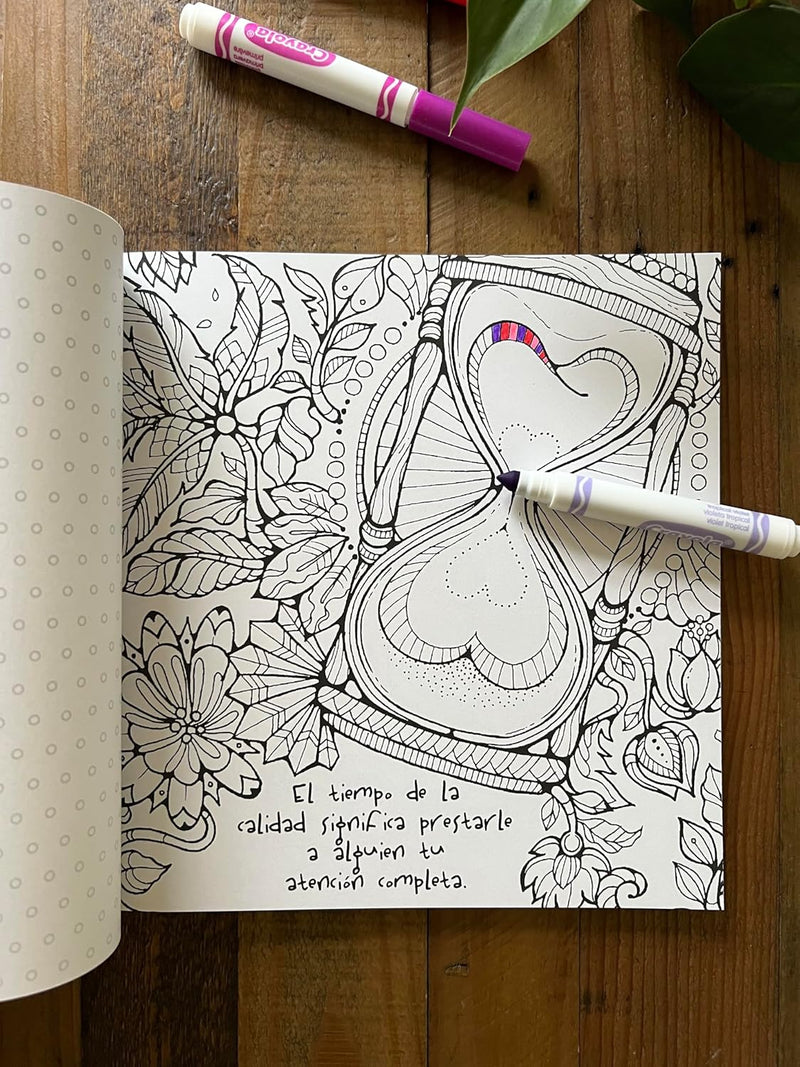 Crayola®
primavera
primavère
El tiempo de la
calidad significa prestarle
a alguien tu
atención completa.
violeta tropical
violet tropical